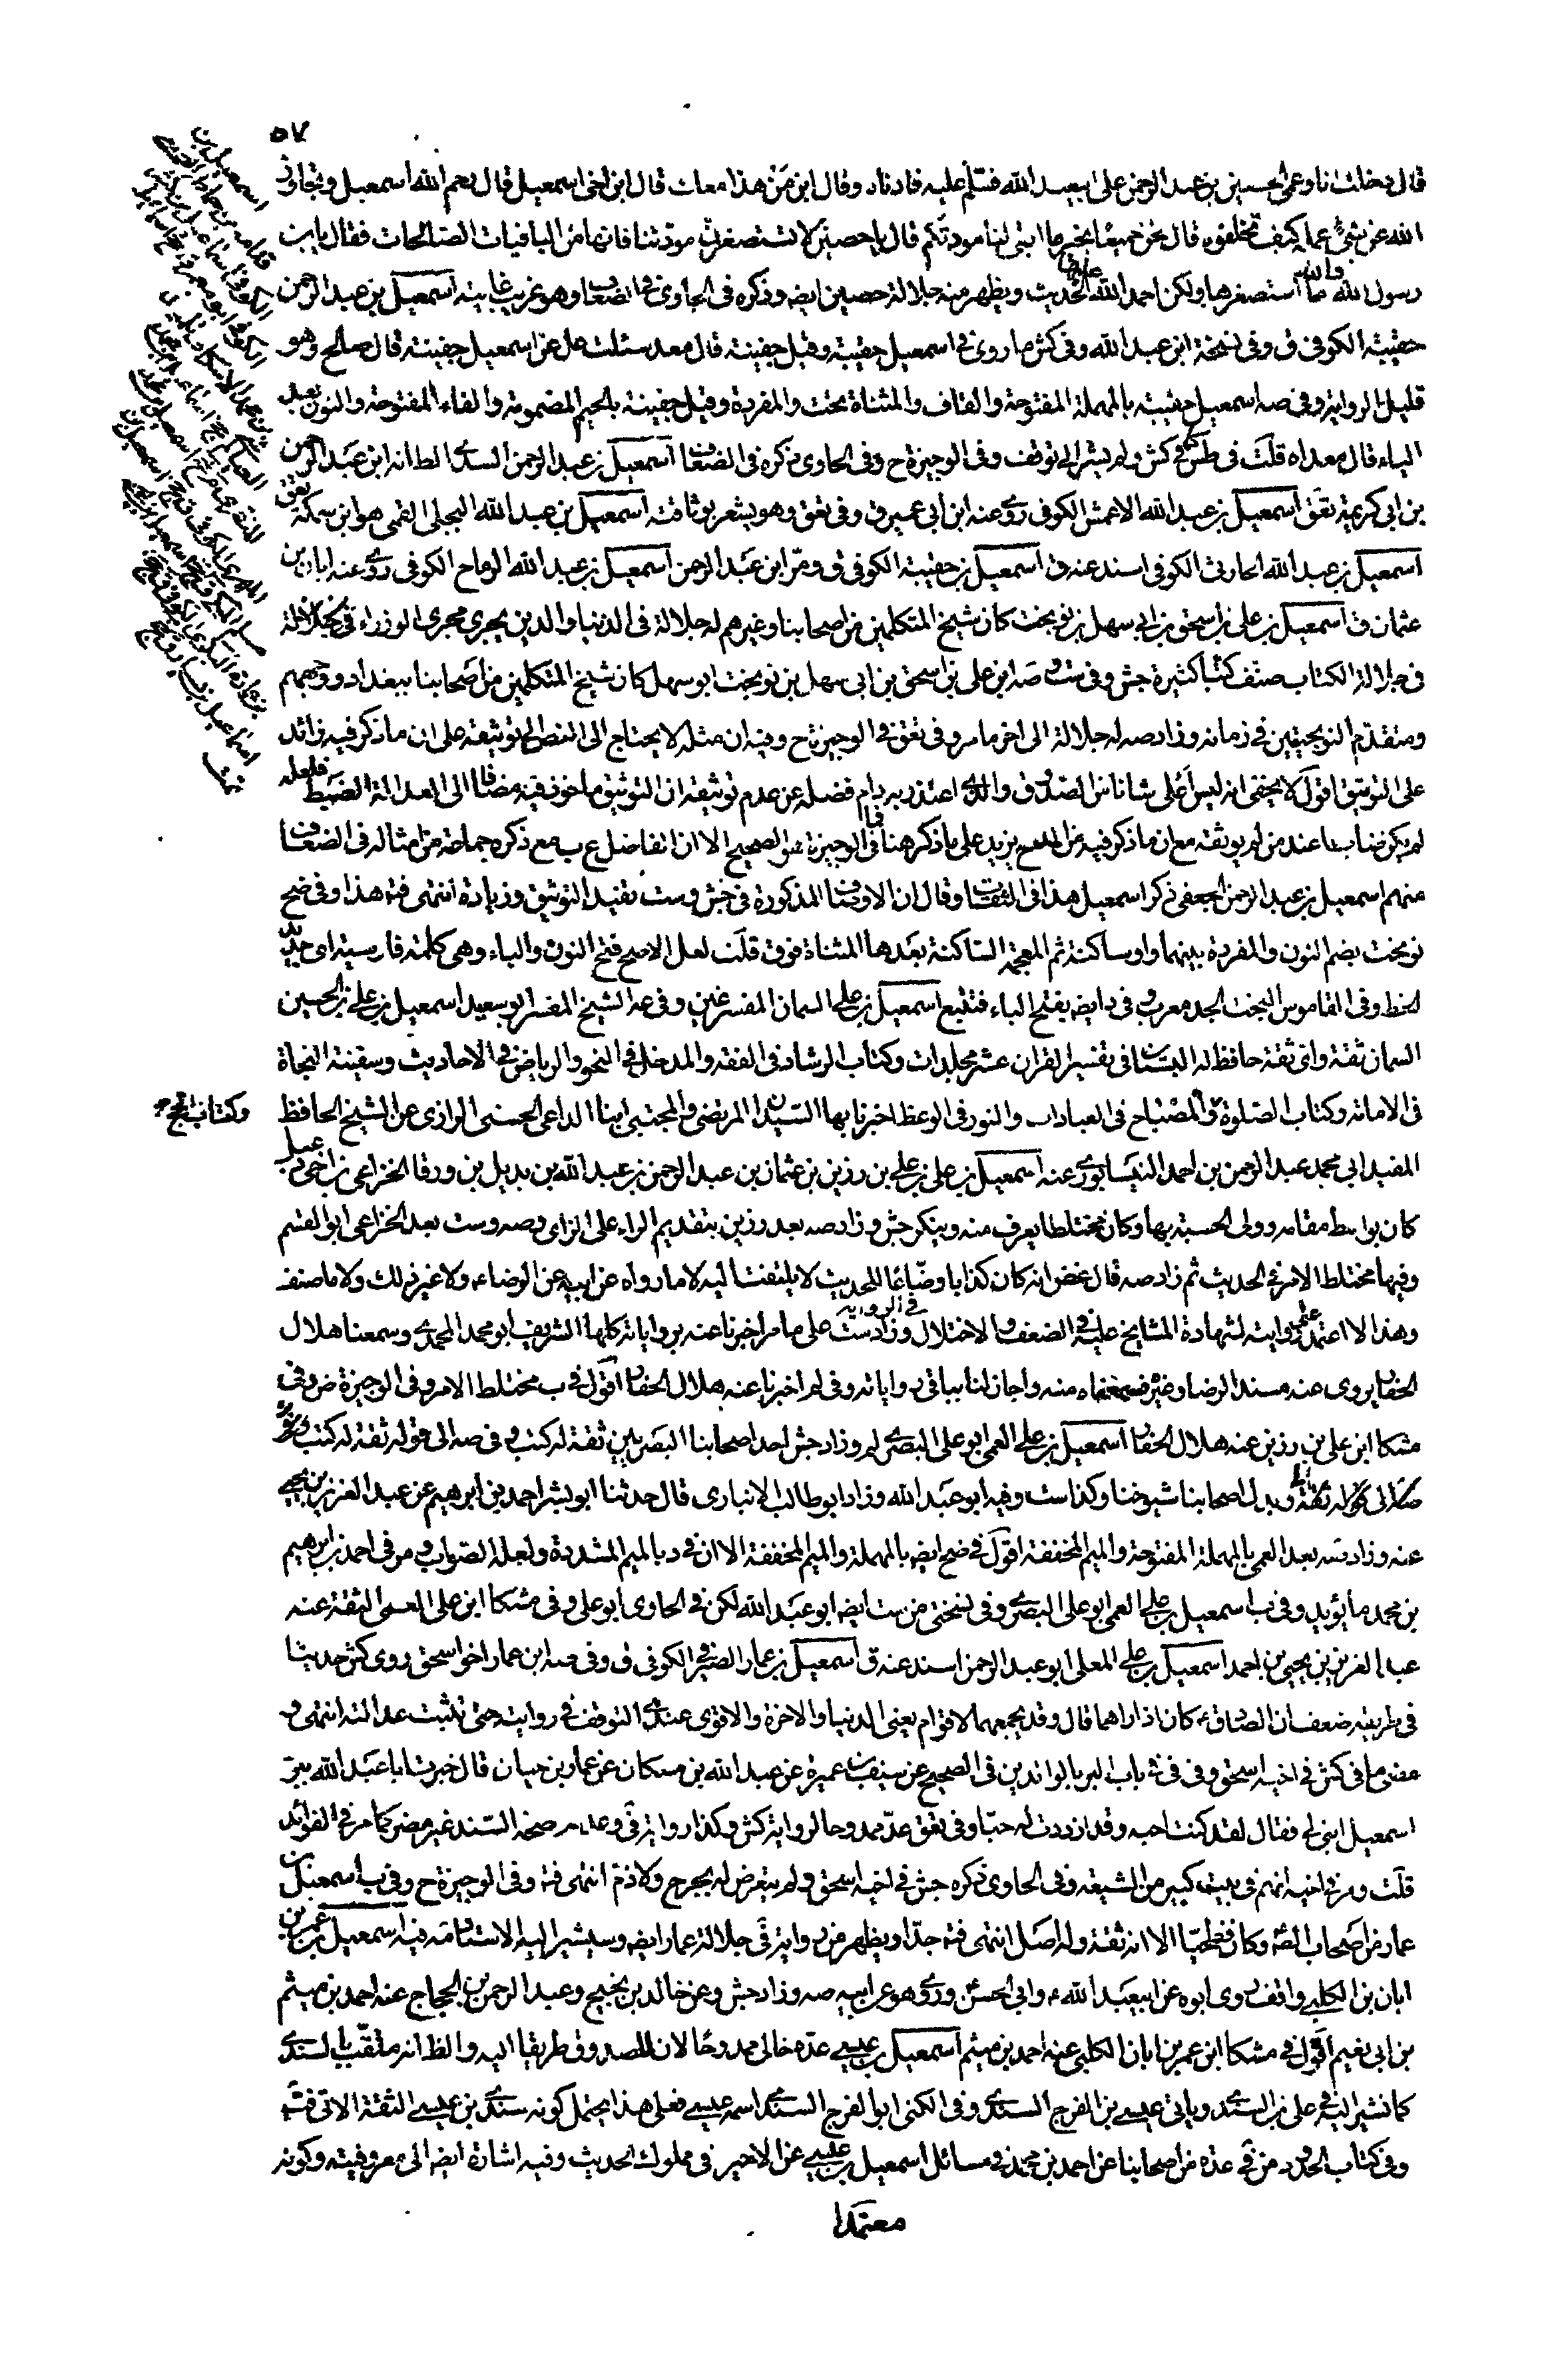 ٥٧
قال دخلت انا وعمى الحسين بن عبد الرحمن على ابيعبد الله فسلم عليه فادناه وقال ابن من هذا معك قال ابن اخى اسمعيل قال رحم الله اسمعيل وتجاوز
الله عن سيئ عمله كيف تخلفوه قال نحن جميعا بخير ما ابقى لنا مودتكم قال يا حصين لا تستصغرن مودتنا فانها من الباقيات الصالحات فقال يا بن
رسول الله والله ما استصغرها ولكن احمد الله عليها الحديث ويظهر منه جلالة حصين ايضه وذكره فى الحاوى فى الضعاف وهو غريب غايته اسمعيل بن عبد الرحمن
حقيبة الكوفى ق وفى نسخة ابن عبد الله وفى كش ما روى فى اسمعيل حقيبة وقيل جفينة قال معد سئلت عل عن اسمعيل جفينة قال صالح وهو
قليل الرواية وفى صه اسمعيل حقيبة بالمهملة المفتوحة والقاف والمثناة تحت والمفردة وقيل جفينة بالجيم المضمومة والفاء المفتوحة والنون بعد
الياء قاله معد اه قلت فى طس فى كش ولم يشر الى توقف وفى الوجيزة ح وفى الحاوى ذكره فى الضعاف اسمعيل بن عبد الرحمن السدى الظ انه ابن عبد الرحمن
بن ابى كريمة تعق اسمعيل بن عبد الله الاعمش الكوفى روى عنه ابن ابى عمير ق وفى تعق وهو يشعر بوثاقته اسمعيل بن عبد الله البجلى القمى هو ابن سمكة تعق
اسمعيل بن عبد الله الحارثى الكوفى اسند عنه ق اسمعيل بن حقيبة الكوفى ق ومر ابن عبد الرحمن اسمعيل بن عبد الله الرماح الكوفى روى عنه ابان بن
عثمان ق اسمعيل بن على بن اسحق بن ابى سهل بن نوبخت كان شيخ المتكلمين من اصحابنا وغيرهم له جلالة فى الدنيا والدين يجرى مجرى الوزراء
فى جلالة الكتاب صنف كتبا كثيرة جش وفى ست وصه ابن على بن اسحق بن ابى سهل بن نوبخت ابو سهل كان شيخ المتكلمين من اصحابنا ببغداد ووجههم
ومتقدم النوبختيين فى زمانه وزاد صه له جلالة الى اخر ما مر وفى تعق فى الوجيزة ح وفيه ان مثله لا يحتاج الى النص الى توثيقه على ان ما ذكر فيه زائد
على التوثيق اقول لا يخفى انه ليس اعلى شانا من الصدوق والذى اعتذر به دام فضله عن عدم توثيقه ان التوثيق ماخوذ فيه مضافا الى العدالة الضبط فلعله
لم يكن ضابطا عند من لم يوثقه مع ان ما ذكر فيه من المدح يزيد على ما ذكر هنا فما فى الوجيزة هو الصحيح الا ان الفاضل ع ب مع ذكره جماعة من امثاله فى الضعاف
منهم اسمعيل بن عبد الرحمن الجعفى ذكر اسمعيل هذا فى الثقات وقال ان الاوصاف المذكورة فى جش وست تفيد التوثيق وزيادة انتهى فتم هذا وفى ضح
نوبخت بضم النون والمفردة بينهما واو ساكنة ثم المعجمة الساكنة بعدها المثناة فوق قلت لعل الاصح فتح النون والباء وهى كلمة فارسية اى جديد
الحظ وفى القاموس البخت الجد معرب وفى د ايضه بفتح الباء فتتبع اسمعيل بن على السمان المفسر غين وفى عه الشيخ المفسر ابو سعيد اسمعيل بن على بن الحسين
السمان ثقة واى ثقة حافظ له البستان فى تفسير القران عشر مجلدات وكتاب الرشاد فى الفقه والمدخل فى النحو والرياض فى الاحاديث وسفينة النجاة
فى الامامة وكتاب الصلوة والمصباح فى العبادات والنور فى الوعظ اخبرنا بها السيدان المرتضى والمجتبى ابنا الداعى الحسنى الرازى عن الشيخ الحافظ
وكتاب الحج
المفيد ابى محمد عبد الرحمن بن احمد النيسابورى عنه اسمعيل بن على بن على بن رزين بن عثمان بن عبد الرحمن بن عبد الله بن بديل بن ورقا الخزاعى بن اخى دعبل
كان بواسط مقامه وولى الحسبة بها وكان مختلطا يعرف منه وينكر جش وزاد صه بعد رزين بتقديم الراء على الزاى وصه وست بعد الخزاعى ابو القسم
وفيها مختلط الامر فى الحديث ثم زاد صه قال غض انه كان كذابا وضاعا للحديث لا يلتفت اليه لا ما رواه عن ابيه عن الرضاء ولا غير ذلك ولا ما صنف
وهذا لا اعتمد على روايته لشهادة المشايخ عليه فى الضعف والاختلال فى الرواية وزاد ست على ما مر اخبرنا عنه برواياته كلها الشريف ابو محمد المحمدى وسمعنا هلال
الحفار يروى عنه مسند الرضا وغيره فسمعناه منه واجاز لنا بباقى رواياته وفى لم اخبرنا عنه هلال الحفار اقول فى ب مختلط الامر وفى الوجيزة ض وفى
مشكا ابن على بن رزين عنه هلال الحفار اسمعيل بن على العمى ابو على البصرى لم وزاد جش احد اصحابنا البصريين ثقة له كتب وفى صه الى قوله ثقة له كتب
وبدل اصحابنا شيوخنا وكذا ست وفيه ابو عبد الله وزاد ابو طالب الانبارى قال حدثنا ابو بشر احمد بن ابرهيم عن عبد العزيز بن يحيى
عنه وزاد صه بعد العمى بالمهملة المفتوحة والميم المخففة اقول فى ضح ايضه بالمهملة والميم المخففة الا ان فى د بالميم المشددة ولعله الصواب ومر فى احمد بن ابرهيم
بن محمد ما يؤيده وفى ب اسمعيل بن على العمى ابو على البصرى وفى نسختى من ست ايضه ابو عبد الله لكن فى الحاوى ابو على وفى مشكا ابن على العمى الثقة عنه
عبد العزيز بن يحيى بن احمد اسمعيل بن على المعلى ابو عبد الرحمن اسند عنه ق اسمعيل بن عمار الصيرفى الكوفى ق وفى صه ابن عمار اخو اسحق روى كش حديثا
فى طريقه ضعف ان الصادق ع كان اذا راهما قال وقد يجمعهما لاقوام يعنى الدنيا والاخرة والاقوى عندى التوقف فى روايته حتى تثبت عدالته انتهى و
مضى ما فى كش فى اخيه اسحق وفى فى باب البر بالوالدين فى الصحيح عن سيف بن عميرة عن عبد الله بن مسكان عن عمار بن حيان قال خبرت ابا عبد الله ببر
اسمعيل ابنى لى فقال لقد كنت احبه وقد ازددت له حبا وفى تعق عد ممدوحا لرواية كش وكذا رواية فى وعدم صحة السند غير مضر كما مر فى الفوائد
قلت ومر فى اخيه انهم فى بيت كبير من الشيعة وفى الحاوى ذكره جش فى اخيه اسحق ولم يتعرض له بجرح ولا ذم انتهى فتم وفى الوجيزة ح وفى ب اسمعيل بن
عمار من اصحاب الصا وكان فطحيا الا انه ثقة وله اصل انتهى فتم جدا ويظهر من رواية فى جلالة عمار ايضه وسيشير اليه الاستاد فيه اسمعيل بن عمر بن
ابان بن الكلبى واقف روى ابوه عن ابيعبد الله ع وابى الحسن وروى هو عن ابيه صه وزاد جش وعن خالد بن نجيح وعبد الرحمن بن الحجاج عنه احمد بن ميثم
بن ابى نعيم اقول فى مشكا ابن عمر بن ابان الكلبى عنه احمد بن ميثم اسمعيل بن عيسى عده خالى ممدوحا لان للصدوق طريقا اليه والظ انه ملقب بالسندى
كما نشير اليه فى على بن السندى وياتى عيسى بن الفرج السندى وفى الكنى ابو الفرج السندى اسمه عيسى فعلى هذا يحتمل كونه سندى بن عيسى الثقة الاتى فتم
وفى كتاب الحدود من فى عدة من اصحابنا عن احمد بن محمد فى مسائل اسمعيل بن عيسى عن الاخير فى مملوك الحديث وفيه اشارة ايضه الى معروفيته وكونه
معتمدا